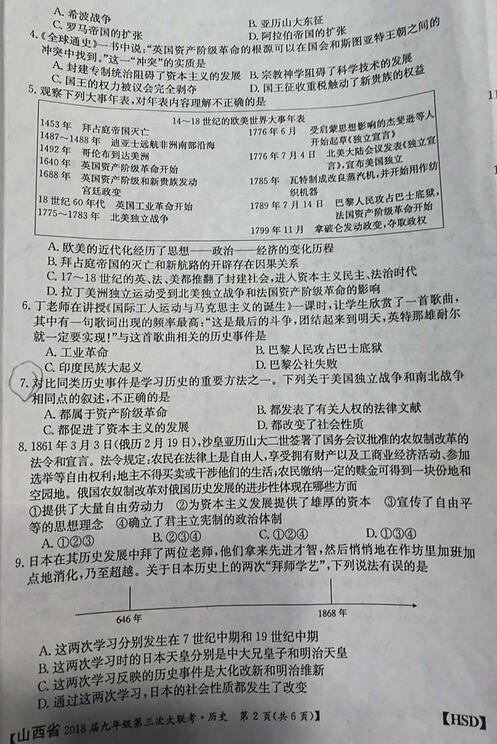 A. 希波战争
B. 亚历山大东征
C. 罗马帝国的扩张
D. 阿拉伯帝国的扩张
4.《全球通史》一书中说:“英国资产阶级革命的根源可以在国会和斯图亚特王朝之间的
冲突中找到。”这一“冲突”的实质是
A. 封建专制统治阻碍了资本主义的发展 B. 宗教神学阻碍了科学技术的发展
C. 国王的权力被议会完全剥夺 D. 国王征收重税触动了新贵族的权益
5. 观察下列大事年表,对年表内容理解不正确的是
14～18世纪的欧美世界大事年表
1453年 拜占庭帝国灭亡
1487～1488年 迪亚士远航非洲南部沿海
1492年 哥伦布到达美洲
1640年 英国资产阶级革命开始
1688年 英国资产阶级和新贵族发动
宫廷政变
18世纪60年代 英国工业革命开始
1775～1783年 北美独立战争
1776年6月 受启蒙思想影响的杰斐逊等人
开始起草《独立宣言》
1776年7月4日 北美大陆会议发表《独立宣
言》,宣布美国独立
1785年 瓦特制成改良蒸汽机,并开始用作纺
织机器
1789年7月14日 巴黎人民攻占巴士底狱,
法国资产阶级革命开始
1799年11月 拿破仑发动政变,夺取政权
A. 欧美的近代化经历了思想——政治——经济的变化历程
B. 拜占庭帝国的灭亡和新航路的开辟存在因果关系
C. 17～18世纪的英、法、美都推翻了封建社会,进入资本主义民主、法治时代
D. 拉丁美洲独立运动受到北美独立战争和法国资产阶级革命的影响
6. 丁老师在讲授《国际工人运动与马克思主义的诞生》一课时,让学生欣赏了一首歌曲,
其中有一句歌词出现的频率最高:“这是最后的斗争,团结起来到明天,英特那雄耐尔
就一定要实现!”与这首歌曲相关的历史事件是
A. 工业革命 B. 巴黎人民攻占巴士底狱
C. 印度民族大起义 D. 巴黎公社失败
7. 对比同类历史事件是学习历史的重要方法之一。下列关于美国独立战争和南北战争
相同点的叙述,不正确的是
A. 都属于资产阶级革命 B. 都发表了有关人权的法律文献
C. 都促进了资本主义的发展 D. 都改变了社会性质
8. 1861年3月3日(俄历2月19日),沙皇亚历山大二世签署了国务会议批准的农奴制改革的
法令和宣言。法令规定:农民在法律上是自由人,享受拥有财产以及工商业经济活动、参加
选举等自由权利;地主不得买卖或干涉他们的生活;农民缴纳一定的赎金可得到一块份地和
空园地。俄国农奴制改革对俄国历史发展的进步性体现在哪些方面
①提供了大量自由劳动力 ②为资本主义发展提供了雄厚的资本 ③宣传了自由平
等的思想理念 ④确立了君主立宪制的政治体制
A. ①②③ B. ②③④ C. ①②④ D. ①③④
9. 日本在其历史发展中拜了两位老师,他们拿来先进才智,然后悄悄地在作坊里加班加
点地消化,乃至超越。关于日本历史上的两次“拜师学艺”,下列说法有误的是
646年 1868年
A. 这两次学习分别发生在7世纪中期和19世纪中期
B. 这两次学习时的日本天皇分别是中大兄皇子和明治天皇
C. 这两次学习反映的历史事件是大化改新和明治维新
D. 通过这两次学习,日本的社会性质都发生了改变
【山西省2018届九年级第三次大联考·历史 第2页(共6页)】 【HSD】